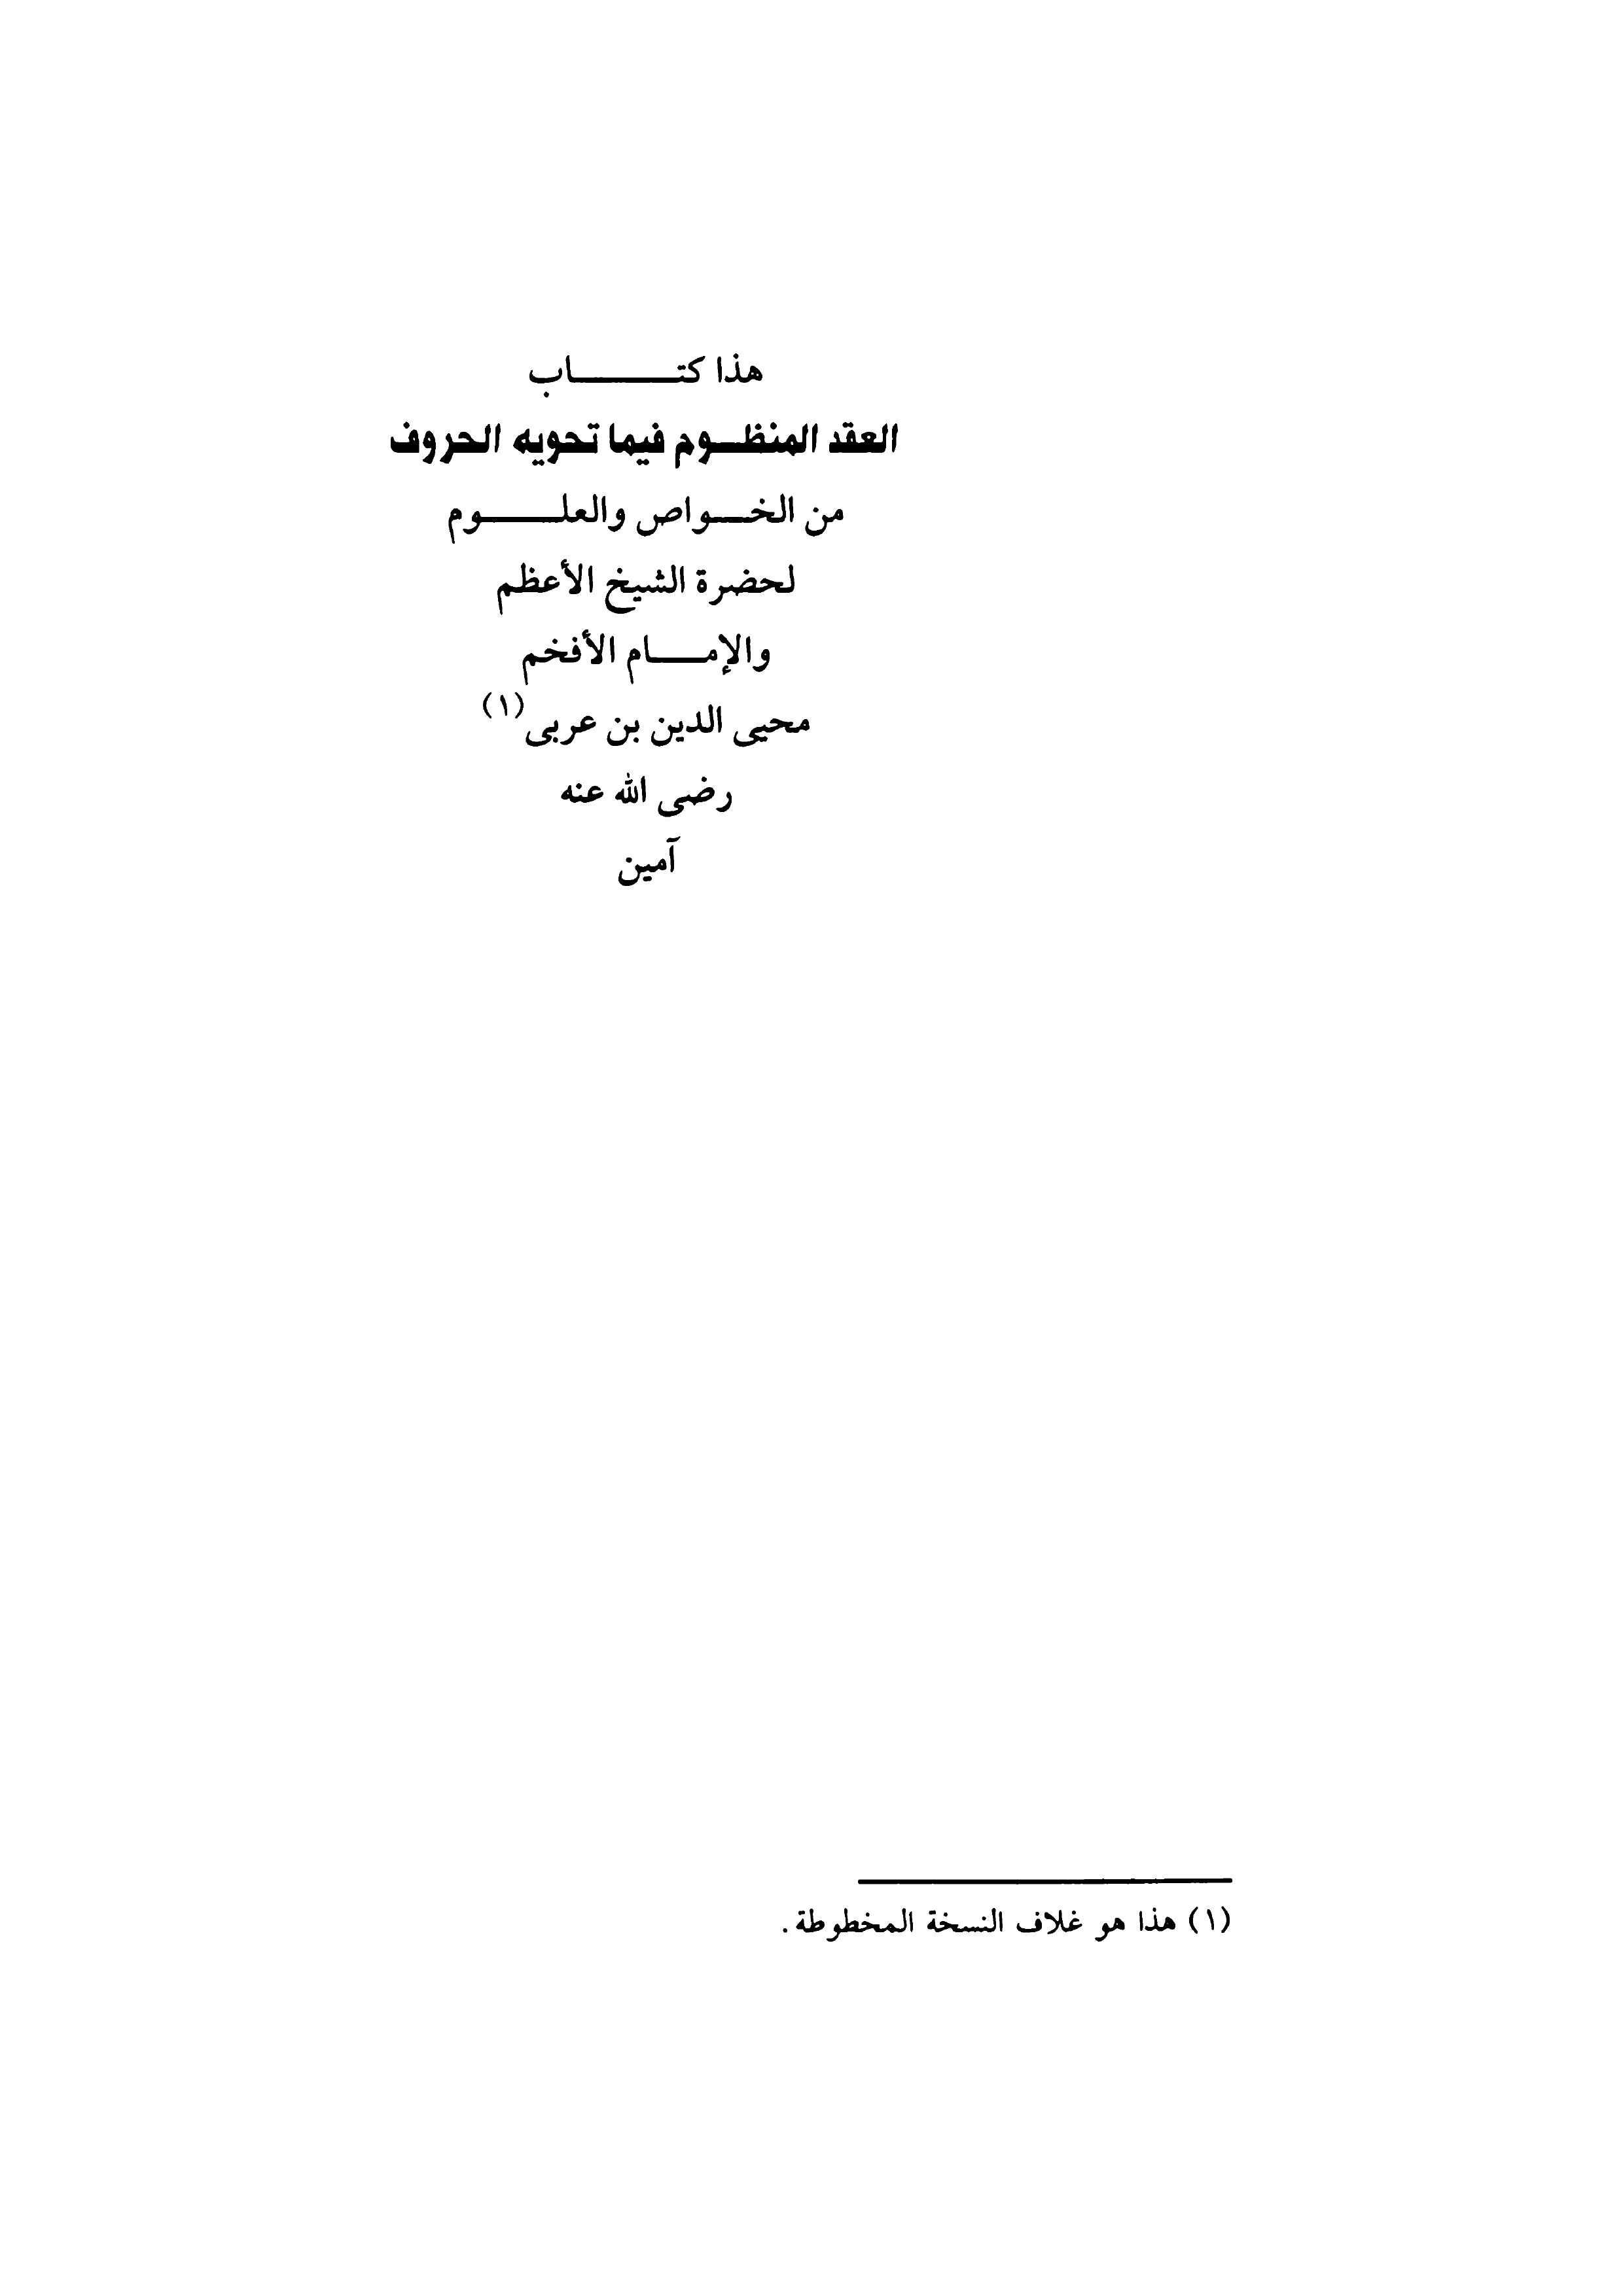 هذا كتـــــــاب
العقد المنظـــوم فيما تحويه الحروف
من الخـــواص والعلـــــوم
لحضرة الشيخ الأعظم
والإمـــــام الأفخم
محيى الدين بن عربى(١)
رضى الله عنه
آمين
(١) هذا هو غلاف النسخة المخطوطة.